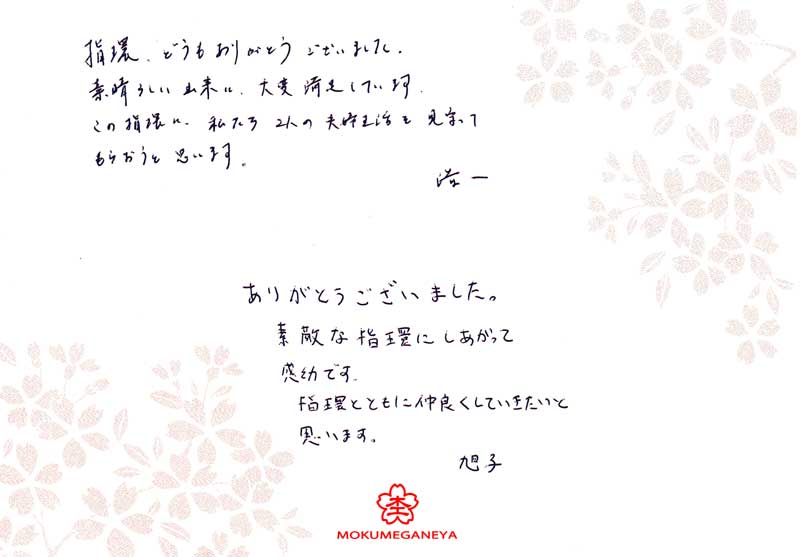 指環、どうもありがとうございました。
素晴らしい出来に、大変満足しています。
この指環に、私たち2人の夫婦生活を見守って
もらおうと思います。
浩一
ありがとうございました。
素敵な指環にしあがって
感動です。
指環とともに仲良くしていきたいと
思います。
旭子
MOKUMEGANEYA